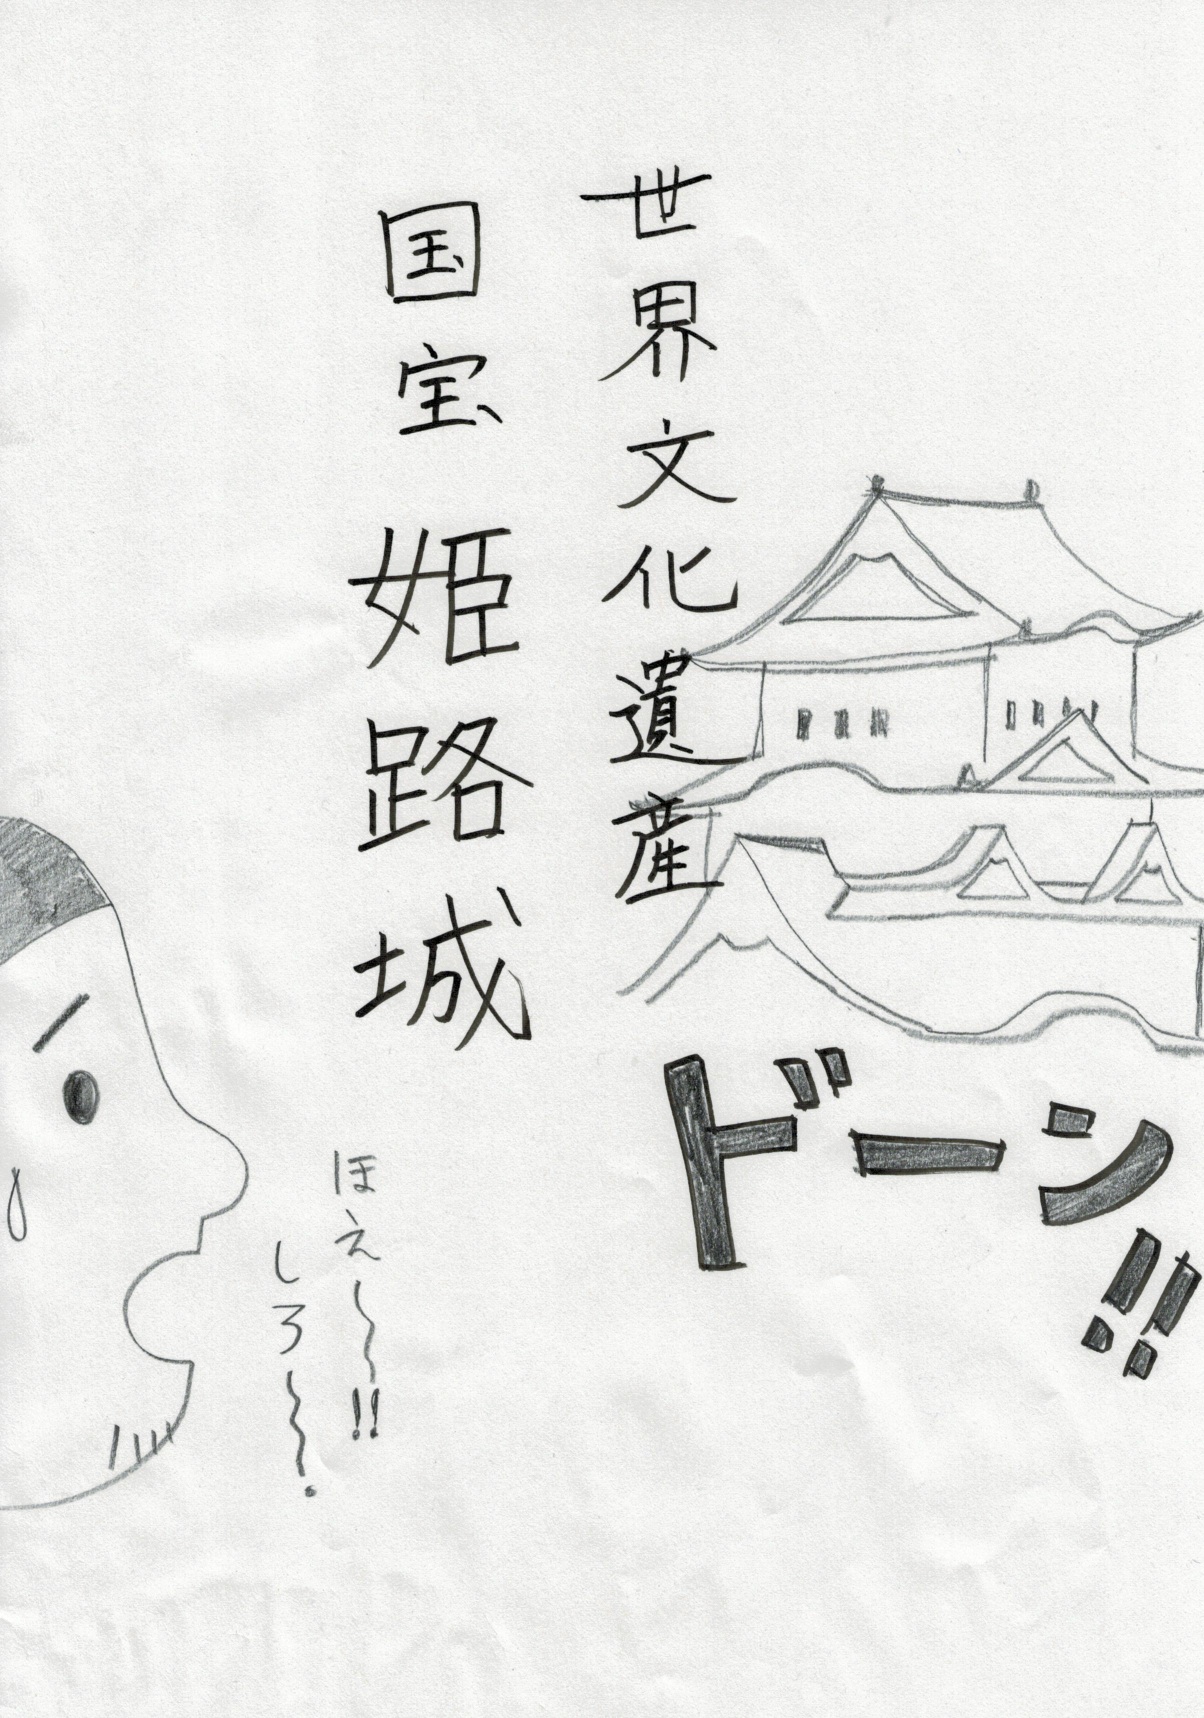 世界文化遺産
国宝 姫路城
ドーン!!
ほえ〜〜!!
しろ〜〜.